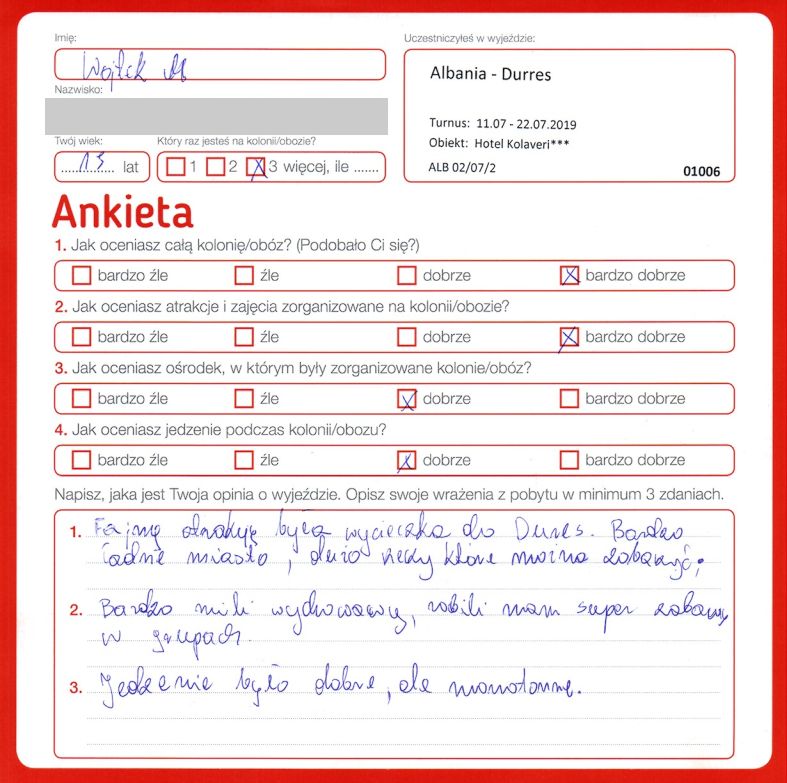 Imię:
Wojtek M
Nazwisko:
Twój wiek:
13 lat
Który raz jesteś na kolonii/obozie?
1 2 3 więcej, ile .......
Uczestniczyłeś w wyjeździe:
Albania - Durres
Turnus: 11.07 - 22.07.2019
Obiekt: Hotel Kolaveri***
ALB 02/07/2
01006
Ankieta
1. Jak oceniasz całą kolonię/obóz? (Podobało Ci się?)
bardzo źle źle dobrze bardzo dobrze
2. Jak oceniasz atrakcje i zajęcia zorganizowane na kolonii/obozie?
bardzo źle źle dobrze bardzo dobrze
3. Jak oceniasz ośrodek, w którym były zorganizowane kolonie/obóz?
bardzo źle źle dobrze bardzo dobrze
4. Jak oceniasz jedzenie podczas kolonii/obozu?
bardzo źle źle dobrze bardzo dobrze
Napisz, jaka jest Twoja opinia o wyjeździe. Opisz swoje wrażenia z pobytu w minimum 3 zdaniach.
1. Fajną atrakcją była wycieczka do Dures. Bardzo
ładne miasto, dużo które można zobaczyć.
2. Bardzo mili wychowawcy, robili nam super zabawy
w grupach.
3. Jedzenie było dobre, ale monotonne.